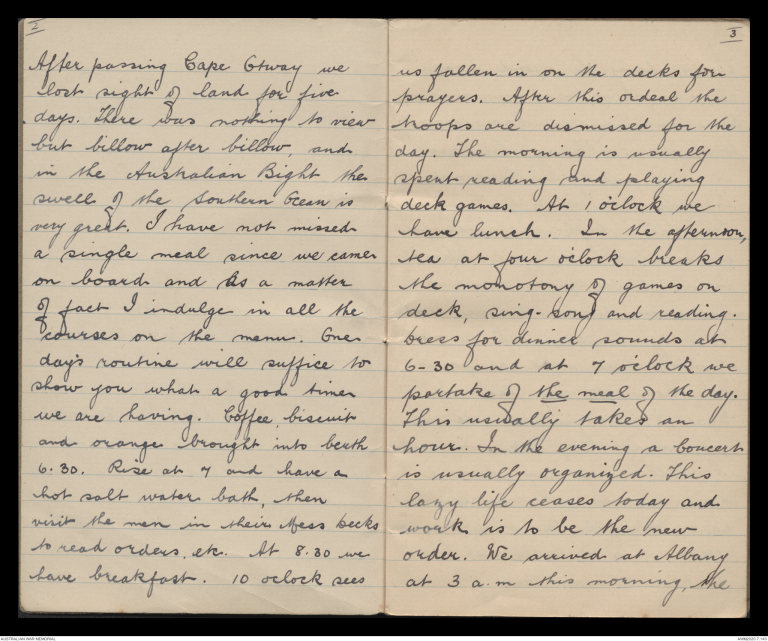 2
After passing Cape Otway we
lost sight of land for five
days. There was nothing to view
but billow after billow, and
in the Australian Bight the
swell of the Southern Ocean is
very great. I have not missed
a single meal since we came
on board and As a matter
of fact I indulge in all the
courses on the menu. One
day's routine will suffice to
show you what a good time
we are having. Coffee, biscuit
and orange brought into berth
6.30. Rise at 7 and have a
hot salt water bath, then
visit the men in their Mess Decks
to read orders, etc. At 8.30 we
have breakfast. 10 oclock sees
3
us fallen in on the decks for
prayers. After this ordeal the
troops are dismissed for the
day. The morning is usually
spent reading and playing
deck games. At 1 o'clock we
have lunch. In the afternoon,
tea at four o'clock breaks
the monotony of games on
deck, sing-song and reading.
Dress for dinner sounds at
6-30 and at 7 o'clock we
partake of the meal of the day.
This usually takes an
hour. In the evening a concert
is usually organized. This
lazy life ceases today and
work is to be the new
order. We arrived at Albany
at 3 a.m this morning, the
AUSTRALIAN WAR MEMORIAL